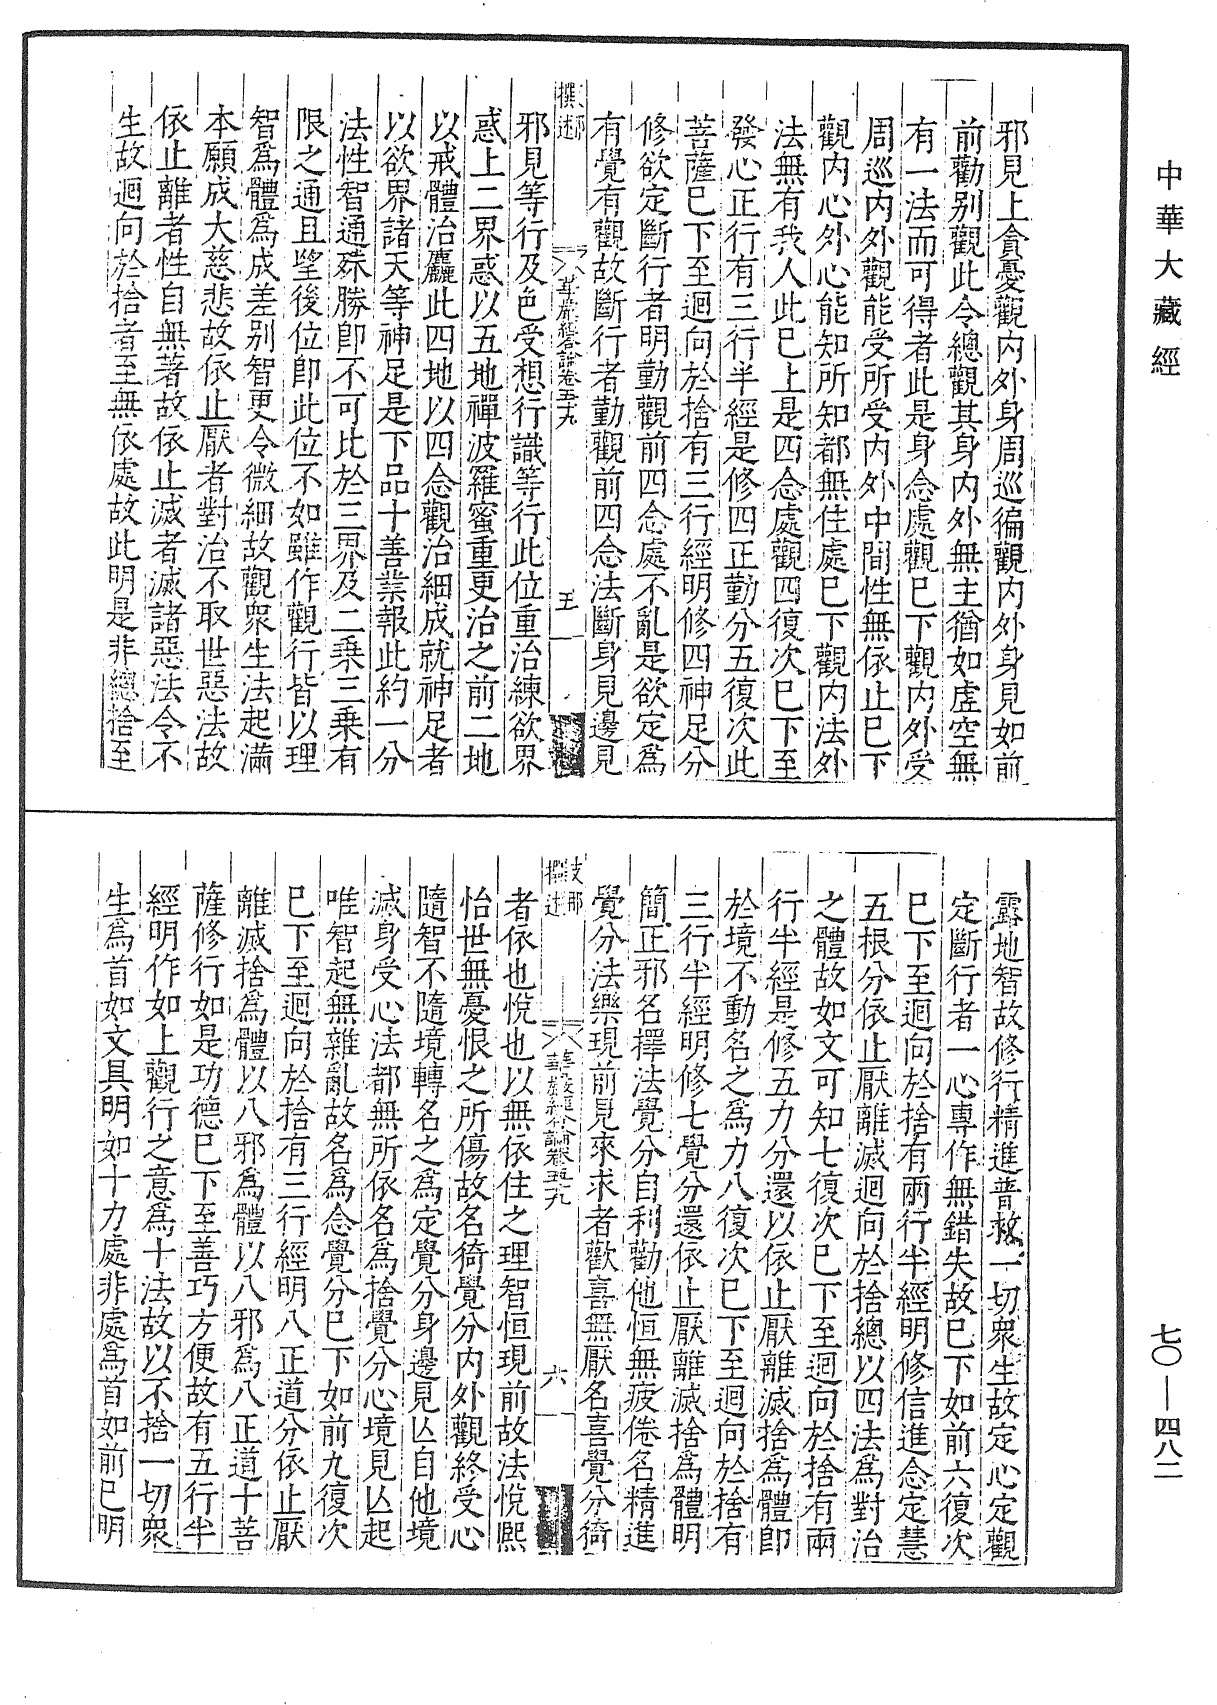 中華大藏經
邪見上貪憂觀內外身周巡徧觀內外身見如前
前勸別觀此令總觀其身內外無主猶如虛空無
有一法而可得者此是身念處觀巳下觀內外受
周巡內外觀能受所受內外中間性無依止巳下
觀內心外心能知所知都無住處巳下觀內法外
法無有我人此巳上是四念處觀四復次巳下至
發心正行有三行半經是修四正勤分五復次此
菩薩巳下至迴向於捨有三行經明修四神足分
修欲定斷行者明勤觀前四念處不亂是欲定爲
有覺有觀故斷行者勤觀前四念法斷身見邊見
華嚴經合論卷五九
五
邪見等行及色受想行識等行此位重治練欲界
惑上二界惑以五地禪波羅蜜重更治之前二地
以戒體治麤此四地以四念觀治細成就神足者
以欲界諸天等神足是下品十善業報此約一分
法性智通殊勝卽不可比於三界及二乘三乘有
限之通且望後位卽此位不如雖作觀行皆以理
智爲體爲成差別智更令微細故觀衆生法起滿
本願成大慈悲故依止厭者對治不取世惡法故
依止離者性自無著故依止滅者滅諸惡法令不
生故迴向於捨者至無依處故此明是非總捨至
露地智故修行精進普救一切衆生故定心定觀
定斷行者一心專作無錯失故巳下如前六復次
巳下至迴向於捨有兩行半經明修信進念定慧
五根分依止厭離滅迴向於捨總以四法爲對治
之體故如文可知七復次巳下至迴向於捨有兩
行半經是修五力分還以依止厭離滅捨爲體卽
於境不動名之爲力八復次巳下至迴向於捨有
三行半經明修七覺分還依止厭離滅捨爲體明
簡正邪名擇法覺分自利勸他恒無疲倦名精進
覺分法樂現前見來求者歡喜無厭名喜覺分猗
支那
撰述
華嚴經合論卷五九
六
者依也悅也以無依住之理智恒現前故法悅熙
怡世無憂恨之所傷故名猗覺分內外觀終受心
隨智不隨境轉名之爲定覺分身邊見亾自他境
滅身受心法都無所依名爲捨覺分心境見亾起
唯智起無雜亂故名爲念覺分巳下如前九復次
巳下至迴向於捨有三行經明八正道分依止厭
離滅捨爲體以八邪爲體以八邪爲八正道十菩
薩修行如是功德巳下至善巧方便故有五行半
經明作如上觀行之意爲十法故以不捨一切衆
生爲首如文具明如十力處非處爲首如前已明
七〇—四八二